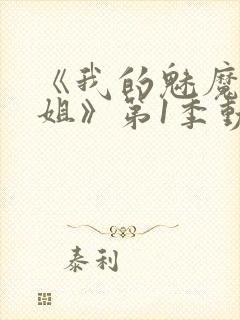 《我的魅魔
姐》第1季動
泰利